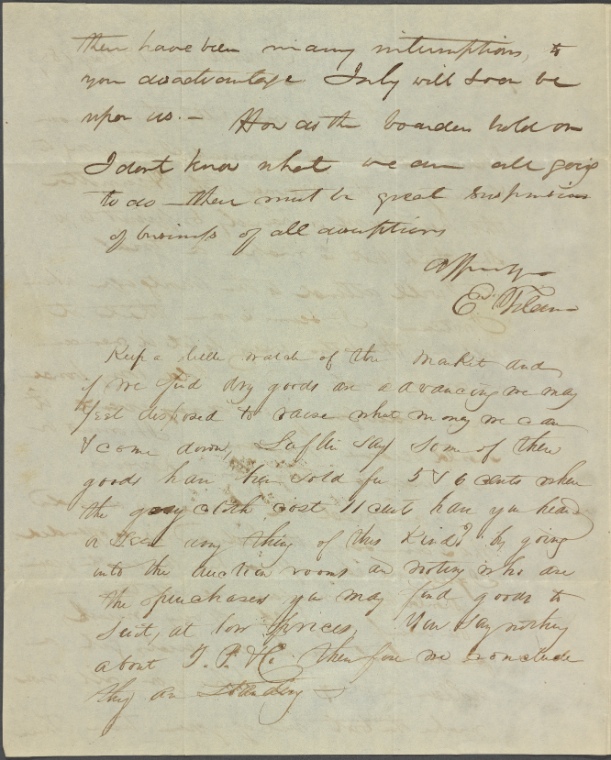 there have been many interruptions, to
your disadvantage July will soon be
upon us. – How do the boarders hold on
I dont know what we are all going
to do – there must be great suspension
of business of all descriptions
Affecty
Ed
Keep a little watch of the market and
if we find dry goods are advancing we may
feel disposed to raise what money we can
& come down, Laflin says some of their
goods have been sold for 5 & 6 cents when
the gray cloth cost 11 cents have you heard
or seen any thing of this kind? by going
into the auction rooms and noting who are
the purchasers you may find goods to
suit, at low prices, You say nothing
about T. P. H. therefore we conclude
they are standing –